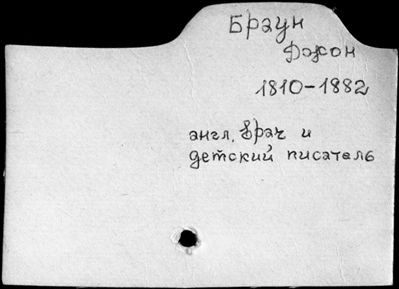 Браун
Джон
1810-1882
англ. врач и
детский писатель